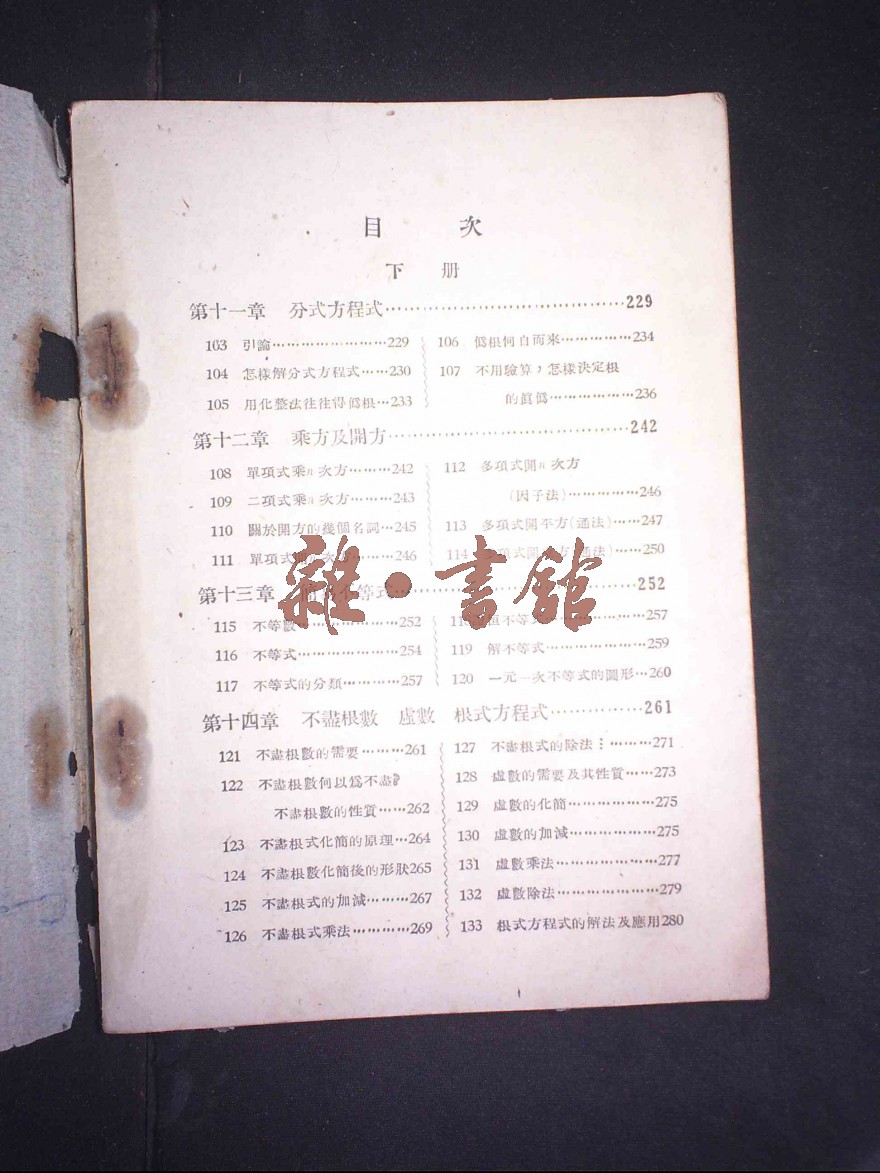 目 次
下 册
第十一章 分式方程式……………………………229
103 引論……………………229
104 怎樣解分式方程式……230
105 用化整法往往得僞根…233
106 僞根何自而來……………234
107 不用驗算，怎樣決定根
的眞僞………………236
第十二章 乘方及開方……………………………242
108 單項式乘n次方………242
109 二項式乘n次方………243
110 關於開方的幾個名詞…245
111 單項式開n次方………246
112 多項式開n次方
（因子法）……………246
113 多項式開平方（通法）……247
114 項式開 方（通法）……250
第十三章 不等式……………………………252
115 不等數…………………252
116 不等式…………………254
117 不等式的分類…………257
不等式…………………257
119 解不等式…………………259
120 一元一次不等式的圖形…260
雜·書館
第十四章 不盡根數 虛數 根式方程式……………261
121 不盡根數的需要………261
122 不盡根數何以爲不盡？
不盡根數的性質……262
123 不盡根式化簡的原理…264
124 不盡根數化簡後的形狀265
125 不盡根式的加減………267
126 不盡根式乘法…………269
127 不盡根式的除法…………271
128 虛數的需要及其性質……273
129 虛數的化簡………………275
130 虛數的加減………………275
131 虛數乘法…………………277
132 虛數除法…………………279
133 根式方程式的解法及應用280